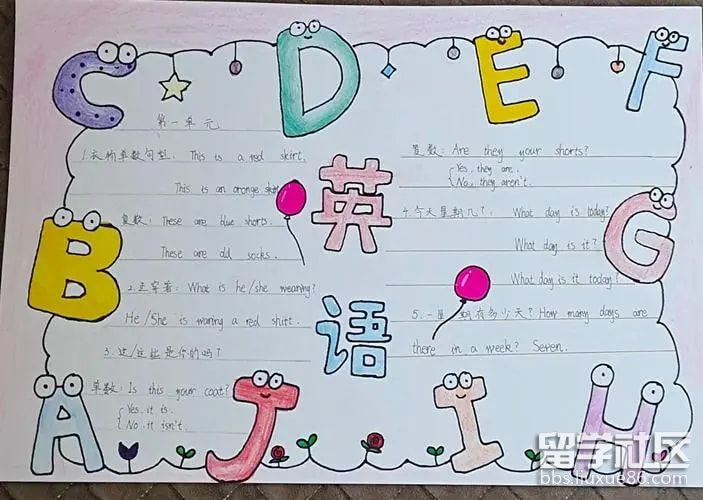 C D E F
第一单元
1.衣物单数句型: This is a red skirt.
This is an orange skirt
复数: These are blue shorts.
These are old socks.
2.正穿着: What is he/she wearing?
He/She is waring a red shitt.
3.这/这些是你的吗?
单数: Is this your coat?
Yes, it is.
No, it isn't.
英
语
复数: Are they your shorts?
Yes, they are.
No, they aren't.
4.今天星期几?: What day is today?
What day is it?
What day is it today?
5.一星期有多少天? How many days are
there in a week? Seven.
B
G
A J I H
留学社区
bbs.liuxue86.com